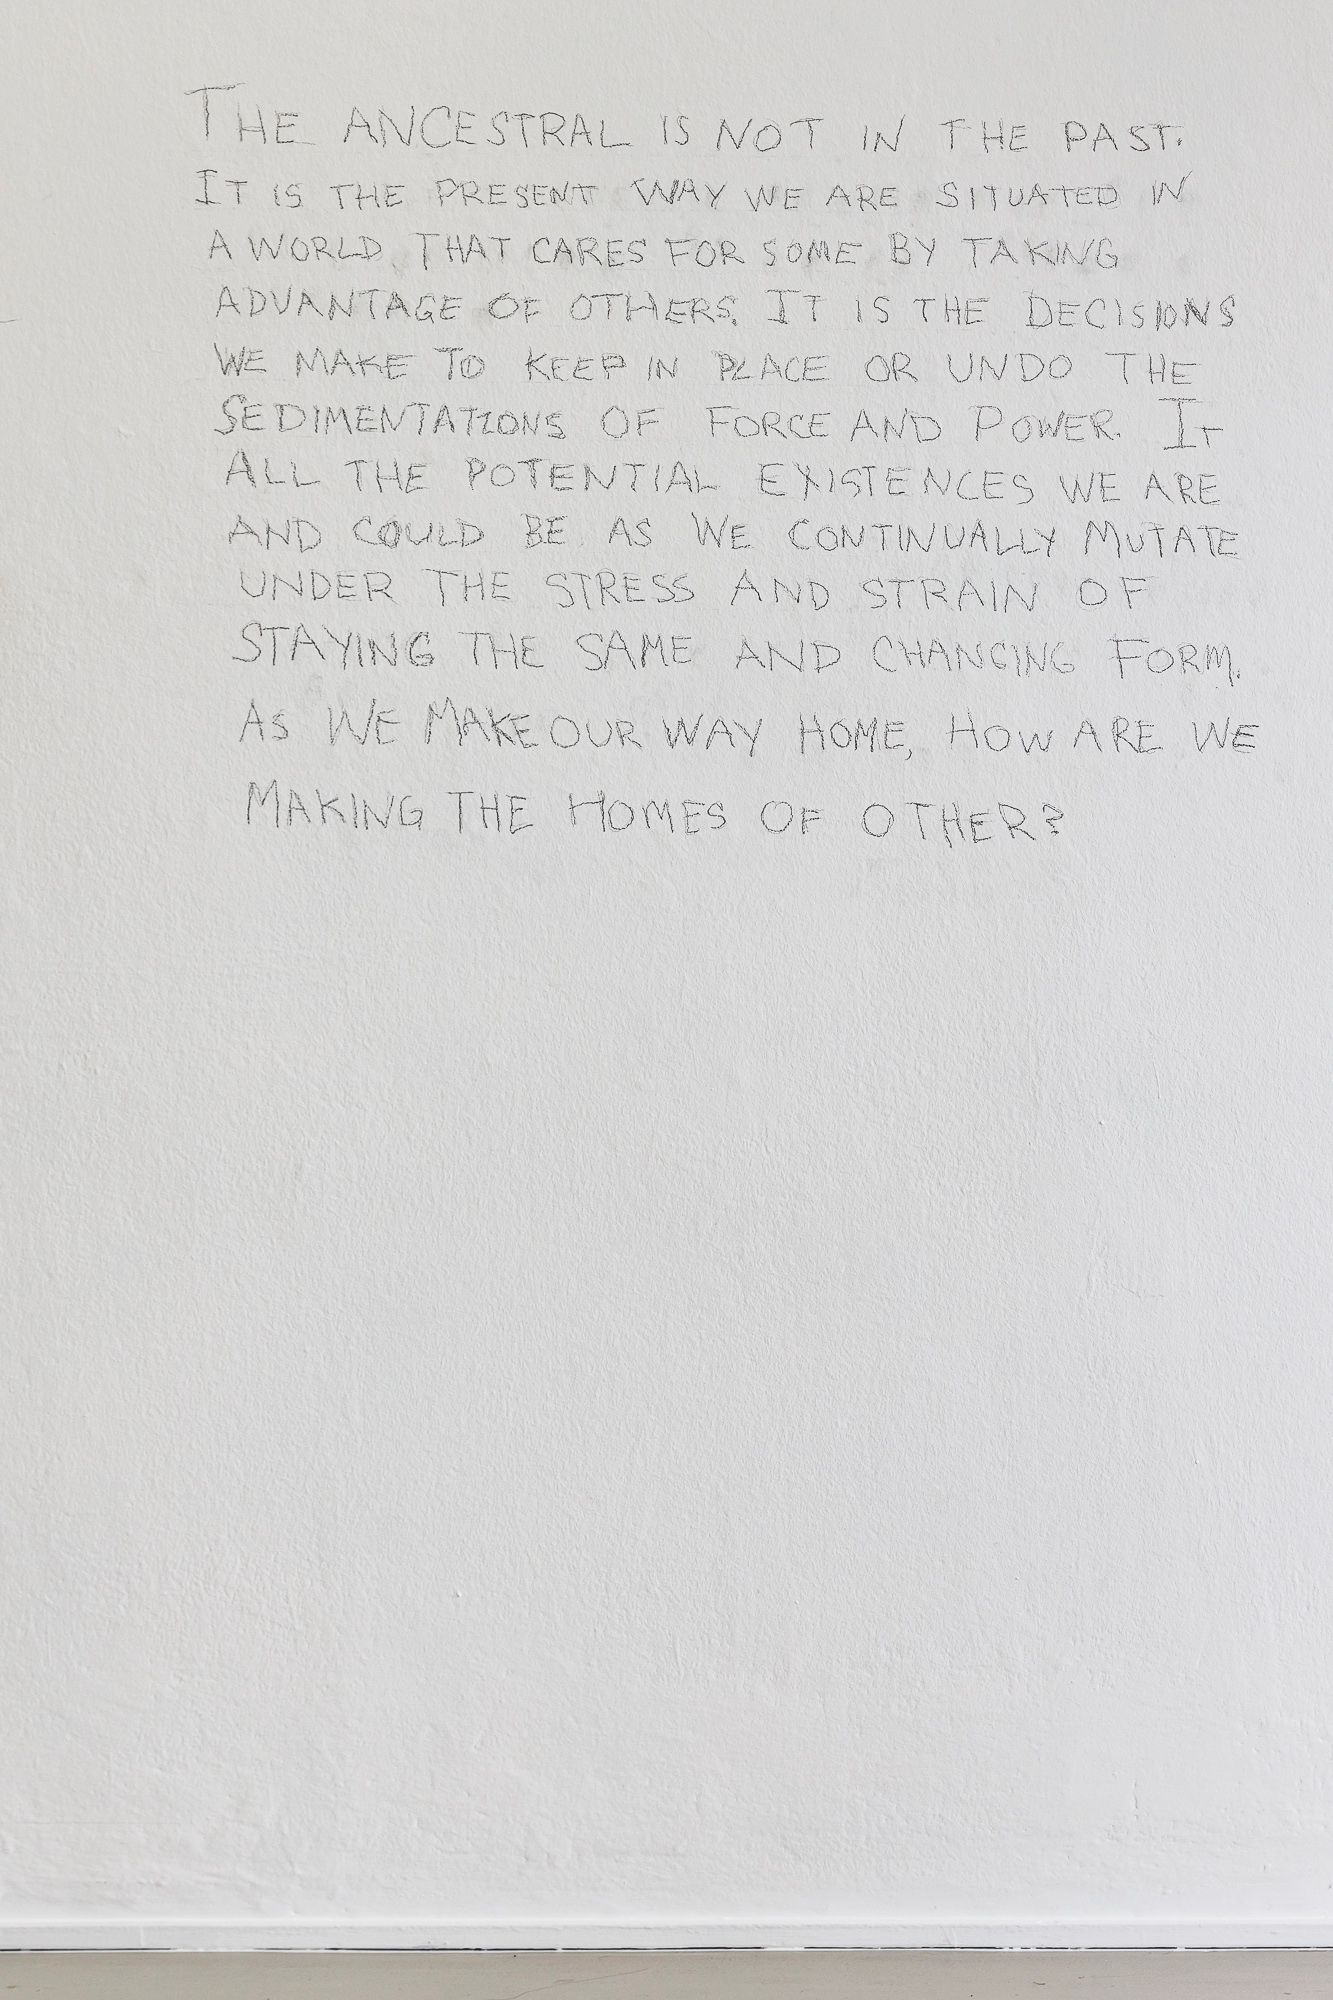 THE ANCESTRAL IS NOT IN THE PAST.
IT IS THE PRESENT WAY WE ARE SITUATED IN
A WORLD THAT CARES FOR SOME BY TAKING
ADVANTAGE OF OTHERS. IT IS THE DECISIONS
WE MAKE TO KEEP IN PLACE OR UNDO THE
SEDIMENTATIONS OF FORCE AND POWER. IT
ALL THE POTENTIAL EXISTENCES WE ARE
AND COULD BE AS WE CONTINUALLY MUTATE
UNDER THE STRESS AND STRAIN OF
STAYING THE SAME AND CHANGING FORM.
AS WE MAKE OUR WAY HOME, HOW ARE WE
MAKING THE HOMES OF OTHER?